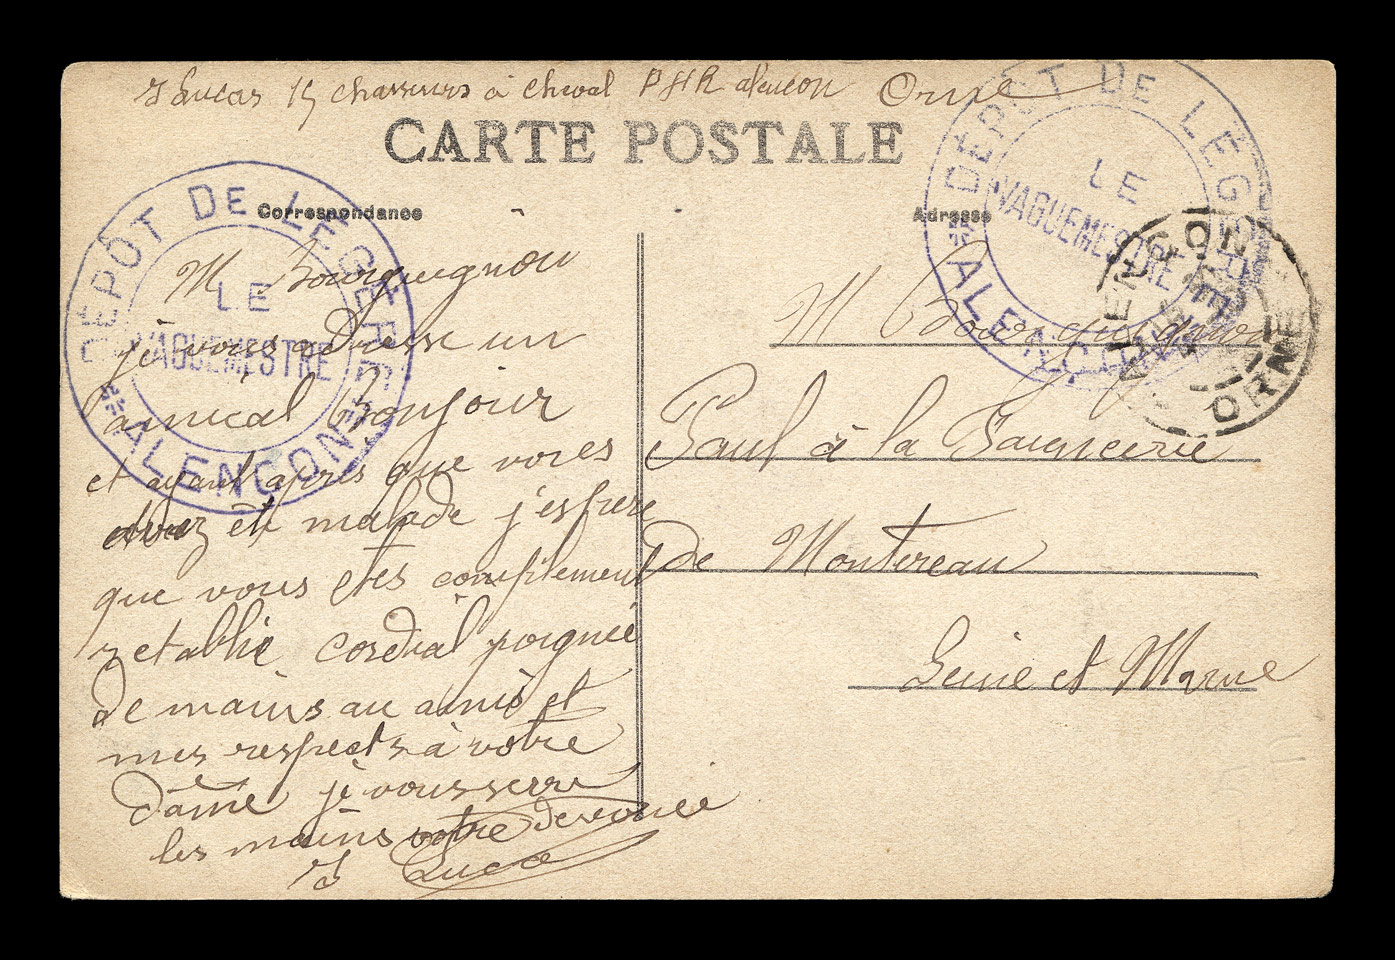 J Lucas 15 chasseurs à cheval P H R alencon Orne
CARTE POSTALE
Correspondance
Adresse
DÉPÔT DE LÉGÈRE
LE
VAGUEMESTRE
* ALENÇON *
DÉPÔT DE LÉGÈRE
LE
VAGUEMESTRE
* ALENÇON
ALENÇON
ORNE
M Bourguignon
je vous adresse un
amical bonjour
et ayant apris que vous
avez ête malade j'espere
que vous etes complement
retablie cordial poignée
de mains au amis et
mes respects à votre
dame je vous serre
les mains votre devouée
J Lucas
M Bourguignon
Paul à la Faiencerie
de Montereau
Seine et Marne